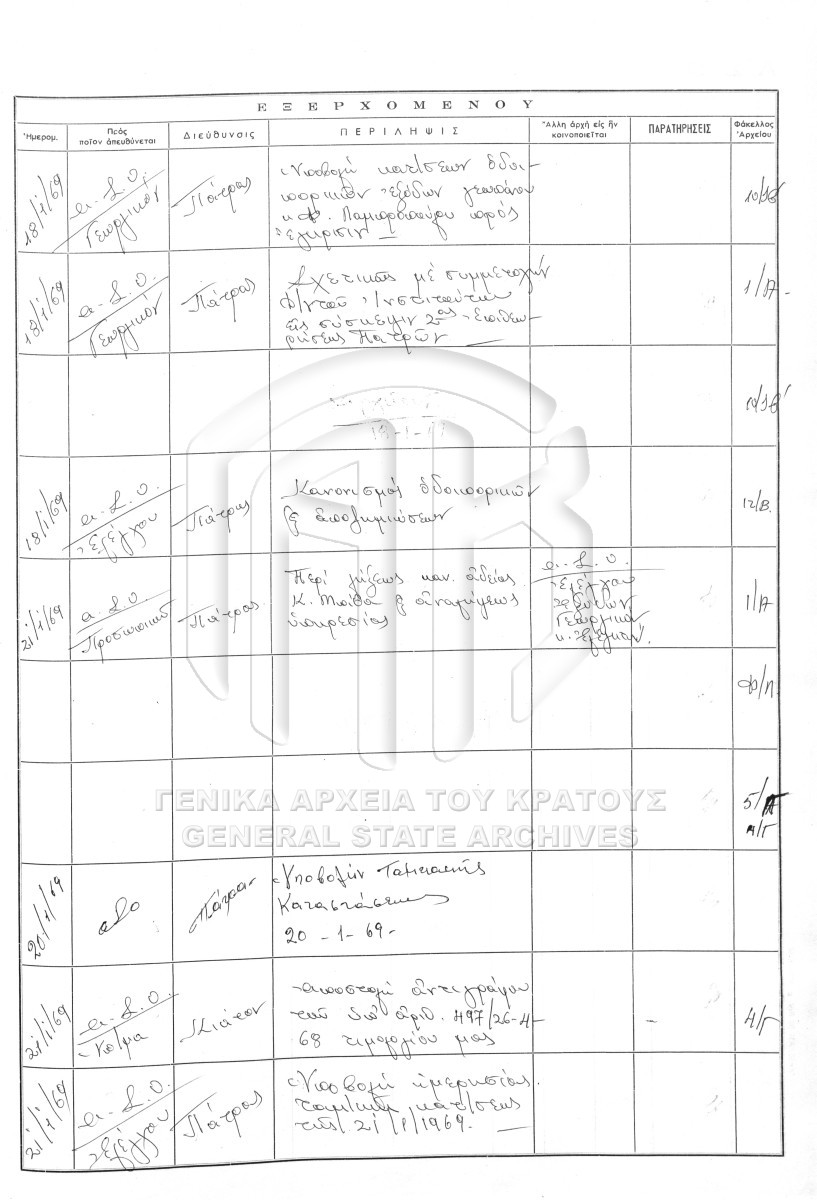 ΕΞΕΡΧΟΜΕΝΟΥ
Ἡμερομ.
Πρὸς ποῖον ἀπευθύνεται
Διεύθυνσις
ΠΕΡΙΛΗΨΙΣ
Ἄλλη ἀρχὴ εἰς ἣν κοινοποιεῖται
ΠΑΡΑΤΗΡΗΣΕΙΣ
Φάκελλος Ἀρχείου
18/1/69
Α.Σ.Ο.
Γεωργικόν
Πάτρας
Ὑποβολὴ κατ/σεων ὁδοι-
πορικῶν ἐξόδων γεωπόνου
πρὸς
ἔγκρισιν —
18/1/69
Α.Σ.Ο.
Γεωργικόν
Πάτρας
Σχετικῶς μὲ συμμετοχὴν
Δ/ντοῦ Ἰνστιτούτου
εἰς σύσκεψιν 2ας Ἐπιθεω-
ρήσεως Πατρῶν —
1/Α
18/1/69
Α.Σ.Ο.
Ἐλέγχου
Πάτρας
Κανονισμὸς ὁδοιπορικῶν
& ἀποζημιώσεων
12/Β.
21/1/69
Α.Σ.Ο.
Προσωπικοῦ
Πάτρας
Περὶ λήξεως καν. ἀδείας
& ἀναλήψεως
ὑπηρεσίας
Α.Σ.Ο.
Ἐλέγχου
Γεωργικὸν
1/Α
Φ/Π
5/
4/Γ
20/1/69
ΑΣΟ
Πάτρα-
Ὑποβολὴν Ταμειακῆς
Καταστάσεως
20-1-69-
21/1/69
Α.Σ.Ο.
Κιάτον
Ἀποστολὴ ἀντιγράφου
τοῦ ὑπ' ἀριθ. 497/26-4-
68 τιμολογίου μας
-
4/Γ
21/1/69
Α.Σ.Ο.
Ἐλέγχου
Πάτρας
Ὑποβολὴ ἡμερησίας
ταμ/κῆς κατ/σεως
τῆς 21/1/1969. —
ΓΕΝΙΚΑ ΑΡΧΕΙΑ ΤΟΥ ΚΡΑΤΟΥΣ
GENERAL STATE ARCHIVES